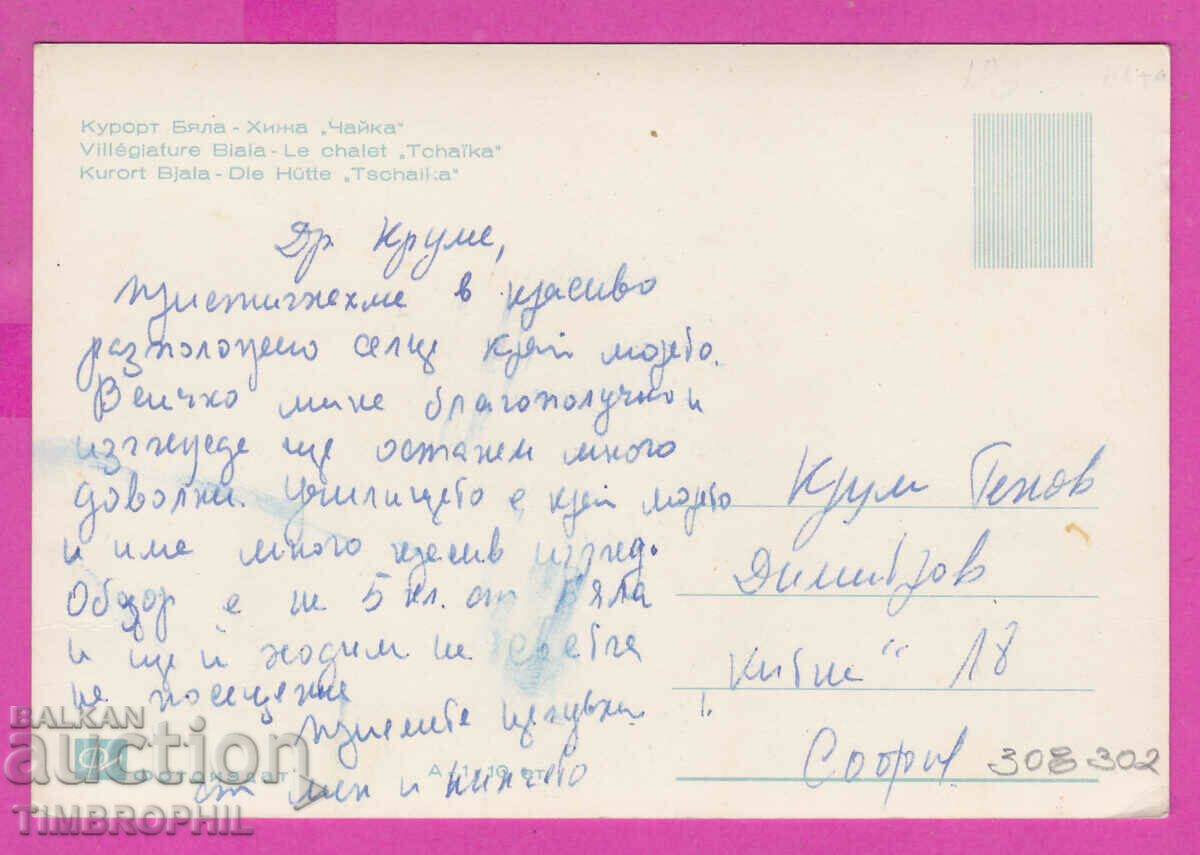 Курорт Бяла - Хижа „Чайка"
Villégiature Biala - Le chalet „Tchaïka"
Kurort Bjala - Die Hütte „Tschaika"
Др. Круме,
Пристигнахме в красиво
разположено селце край морето.
Всичко мина благополучно и
изглежда ще останем много
доволни. Училището е край морето
и има много красив изглед.
Обзор е на 5 кл. от Бяла
и ще й ходим на
на посещение
Приемете целувки
от мен и
Крум Генов
Димитров
"Китна" 18
София
308-302
Фотоиздат
BALKAN
auction
TIMBROPHIL